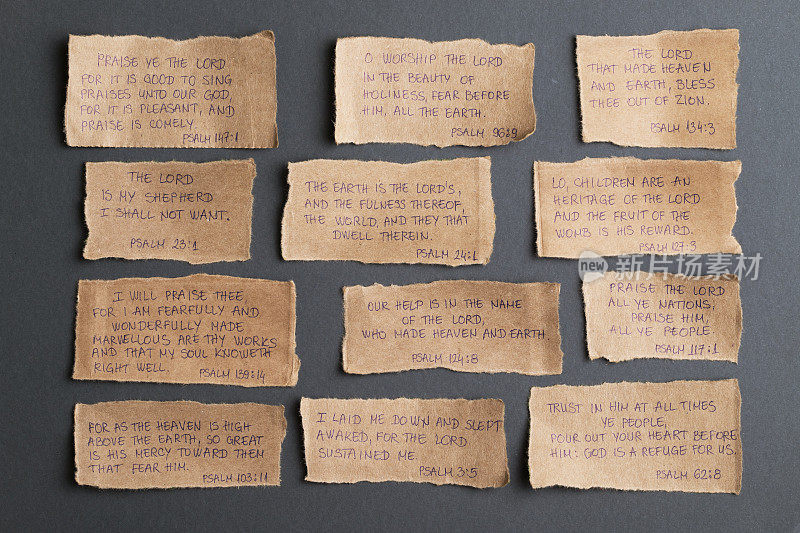 PRAISE YE THE LORD
FOR IT IS GOOD TO SING
PRAISES UNTO OUR GOD,
FOR IT IS PLEASANT, AND
PRAISE IS COMELY
PSALM 147:1
O WORSHIP THE LORD
IN THE BEAUTY OF
HOLINESS, FEAR BEFORE
HIM, ALL THE EARTH.
PSALM 96:9
THE LORD
THAT MADE HEAVEN
AND EARTH, BLESS
THEE OUT OF ZION.
PSALM 134:3
THE LORD
IS MY SHEPHERD
I SHALL NOT WANT.
PSALM 23:1
THE EARTH IS THE LORD'S,
AND THE FULNESS THEREOF,
THE WORLD, AND THEY THAT
DWELL THEREIN.
PSALM 24:1
LO, CHILDREN ARE AN
HERITAGE OF THE LORD
AND THE FRUIT OF THE
WOMB IS HIS REWARD.
PSALM 127:3
I WILL PRAISE THEE
FOR I AM FEARFULLY AND
WONDERFULLY MADE
MARVELLOUS ARE THY WORKS
AND THAT MY SOUL KNOWETH
RIGHT WELL.
PSALM 139:14
OUR HELP IS IN THE NAME
OF THE LORD,
WHO MADE HEAVEN AND EARTH
PSALM 124:8
PRAISE THE LORD
ALL YE NATIONS;
PRAISE HIM,
ALL YE PEOPLE.
PSALM 117:1
FOR AS THE HEAVEN IS HIGH
ABOVE THE EARTH, SO GREAT
IS HIS MERCY TOWARD THEM
THAT FEAR HIM.
PSALM 103:11
I LAID ME DOWN AND SLEPT
AWAKED, FOR THE LORD
SUSTAINED ME.
PSALM 3:5
TRUST IN HIM AT ALL TIMES
YE PEOPLE,
POUR OUT YOUR HEART BEFORE
HIM: GOD IS A REFUGE FOR US.
PSALM 62:8
new 新图网